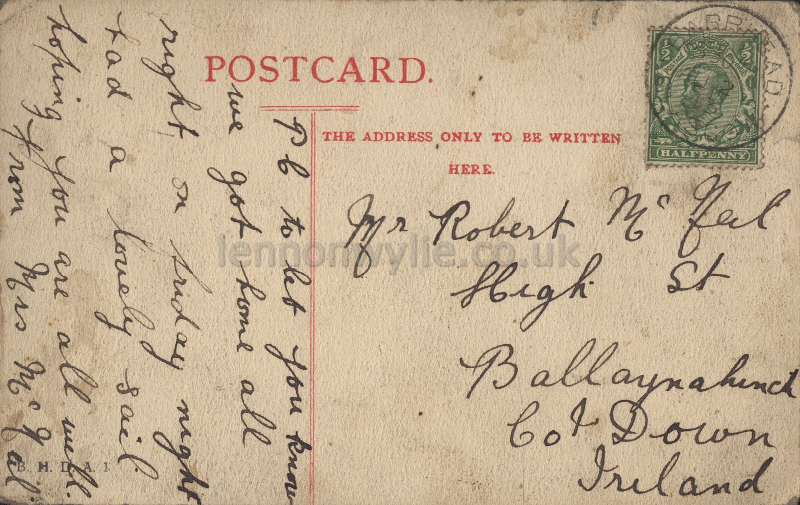 POSTCARD.
THE ADDRESS ONLY TO BE WRITTEN
HERE.
HALFPENNY
½ ½
Mr Robert Mc Neil
High St
Ballaynahinch
Cot Down
Ireland
PC to let you know
we got home all
right on friday night
had a lovely sail
hoping you are all well.
from Mrs Mc
B. H. D. A. 1
lennonwylie.co.uk